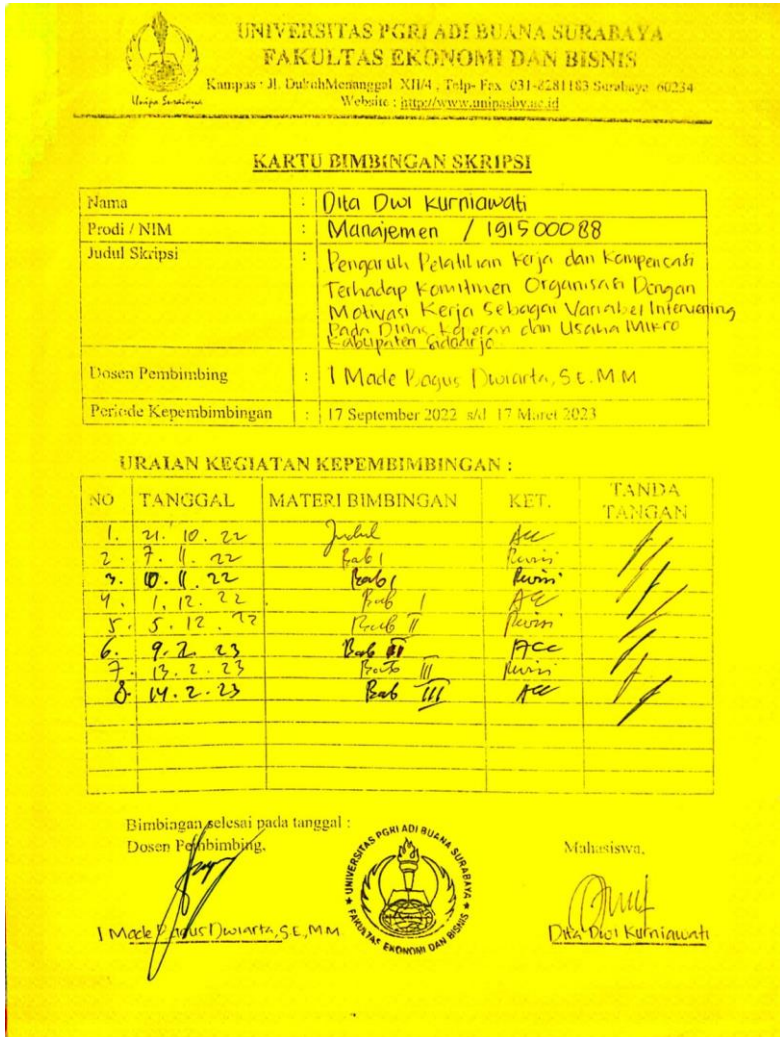 UNIVERSITAS PGRI ADI BUANA SURABAYA
FAKULTAS EKONOMI DAN BISNIS
Kampus : Jl. DukuhMenanggal XII/4 , Telp- Fax 031-8281183 Surabaya 60234
Website : http://www.unipasby.ac.id
Unipa Surabaya
KARTU BIMBINGAN SKRIPSI
Nama : Dita Dwi Kurniawati
Prodi / NIM : Manajemen / 191500088
Judul Skripsi : Pengaruh Pelatihan Kerja dan Kompensasi
Terhadap Komitmen Organisasi Dengan
Motivasi Kerja Sebagai Variabel Intervening
Pada Dinas Koperasi dan Usaha Mikro
Kabupaten Sidoarjo
Dosen Pembimbing : I Made Bagus Dwiarta, SE.MM
Periode Kepembimbingan : 17 September 2022 s/d 17 Maret 2023
URAIAN KEGIATAN KEPEMBIMBINGAN :
NO TANGGAL MATERI BIMBINGAN KET. TANDA TANGAN
1. 21. 10. 22 Judul Acc
2. 7. 11. 22 Bab I Revisi
3. 10. 11. 22 Bab I Revisi
4. 1. 12. 22 Bab I Acc
5. 5. 12. 22 Bab II Revisi
6. 9. 2. 23 Bab Acc
7. 13. 2. 23 Bab III Revisi
8. 14. 2. 23 Bab III Acc
Bimbingan selesai pada tanggal :
Dosen Pembimbing, Mahasiswa,
UNIVERSITAS PGRI ADI BUANA SURABAYA
FAKULTAS EKONOMI DAN BISNIS
I Made Bagus Dwiarta, SE, MM Dita Dwi Kurniawati